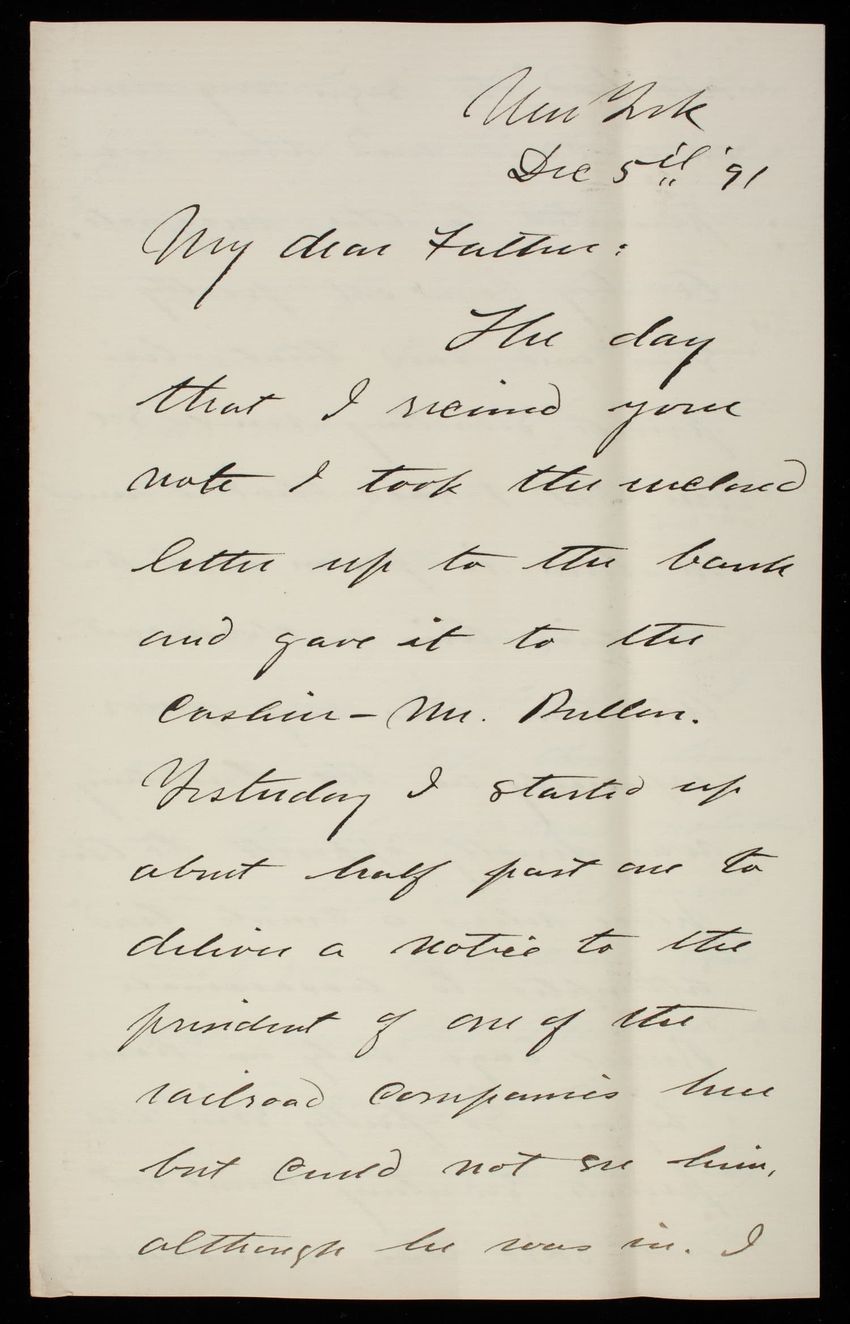 New York
Dec 5th '91
My dear Father:
The day
that I received your
note I took the inclosed
letter up to the bank
and gave it to the
Cashier - Mr. Pullen.
Yesterday I started up
about half past one to
deliver a notice to the
president of one of the
railroad companies here
but could not see him,
although he was in. I